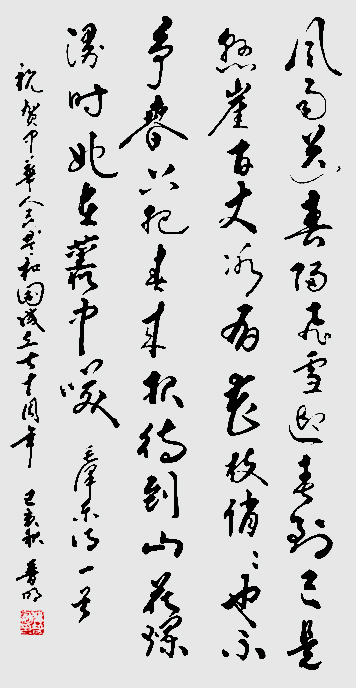 风雨送春歸飞雪迎春到已是
悬崖百丈冰有花枝俏〻也不
争春只把春来报待到山花爛
漫时她在叢中笑 毛泽东词一首
祝贺中华人民共和国成立七十周年 己亥秋